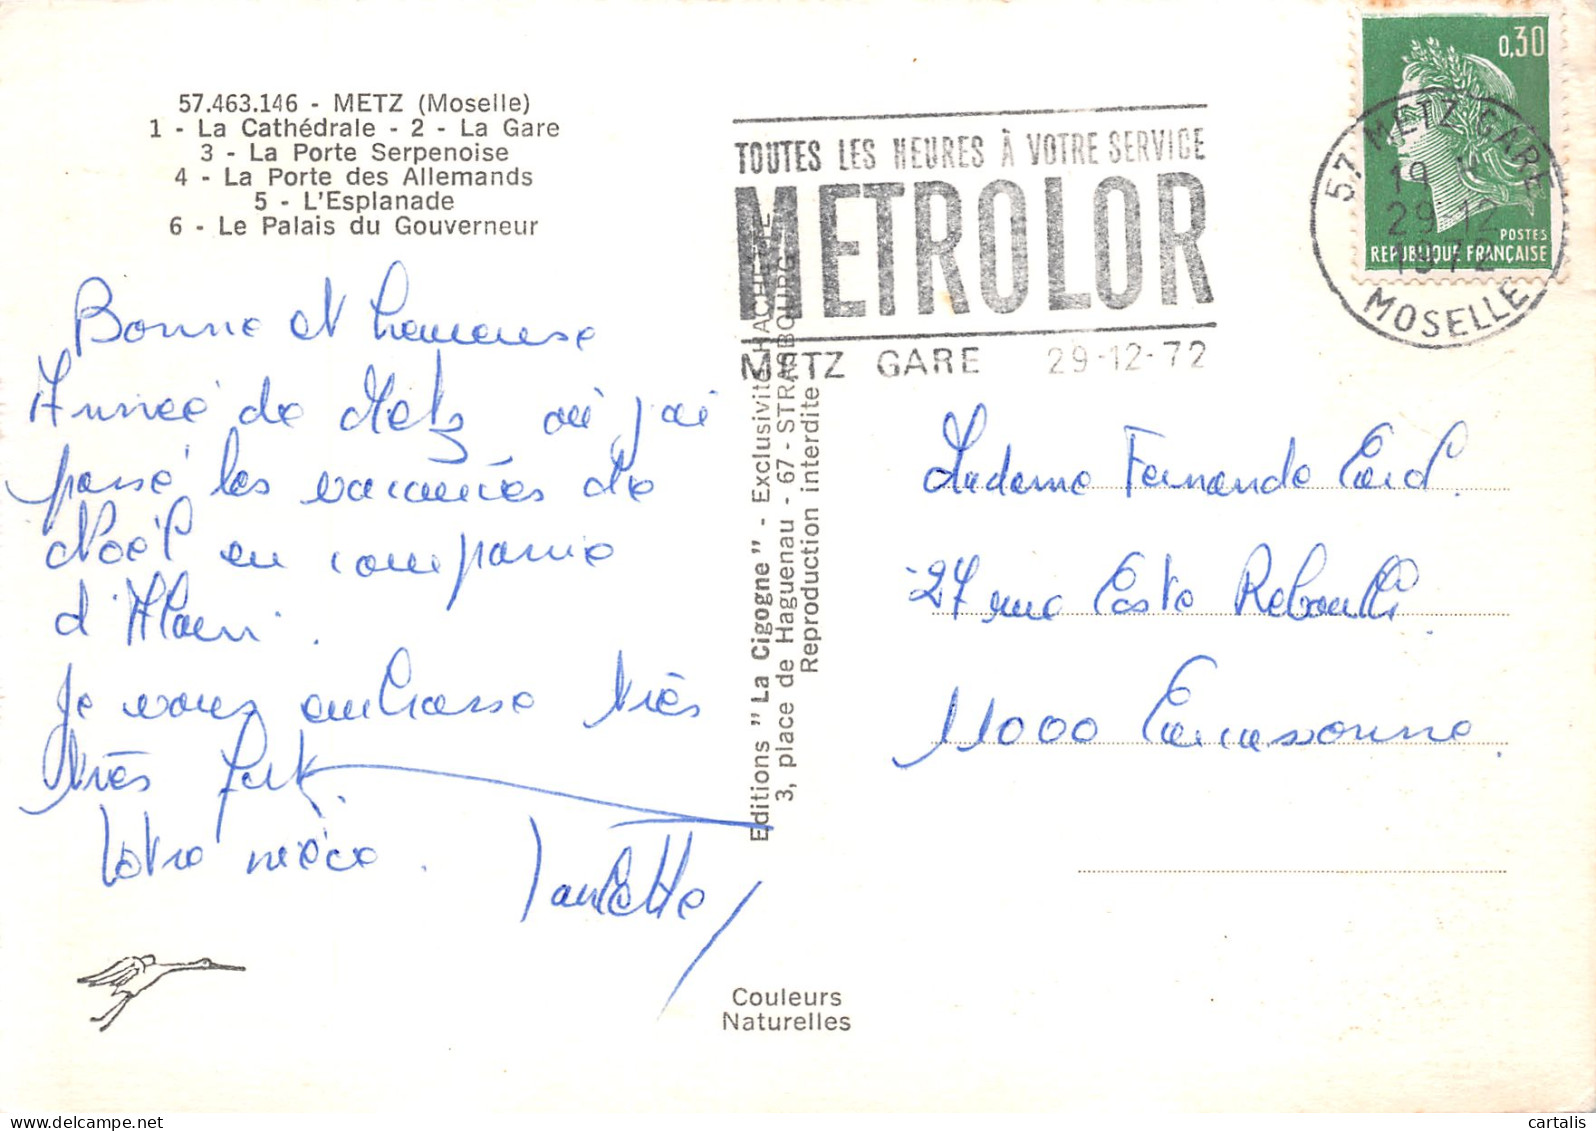 57.463.146 - METZ (Moselle)
1 - La Cathédrale - 2 - La Gare
3 - La Porte Serpenoise
4 - La Porte des Allemands
5 - L'Esplanade
6 - Le Palais du Gouverneur
Bonne et heureuse
Année de Metz où j'ai
passé les vacances de
Noël en compagnie
d'Alain.
Je vous embrasse très
très fort.
Votre nièce.
Couleurs
Naturelles
Editions "La Cigogne" - Exclusivité HACHETTE
3, place de Haguenau - 67 - STRASBOURG
Reproduction interdite
TOUTES LES HEURES À VOTRE SERVICE
METROLOR
METZ GARE 29-12-72
0,30
POSTES
REPUBLIQUE FRANÇAISE
57 METZ GARE
19 H
29-12
1972
MOSELLE
Madame Fernande
27 rue Coste Reboulh
11000 Carcassonne.
cartalis